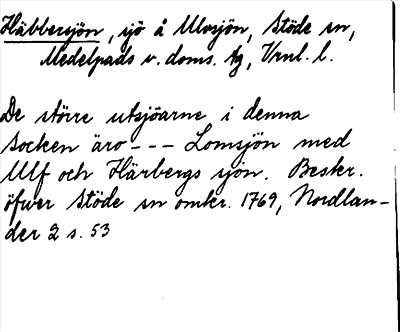 Häbbersjön, sjö å Ulvsjön, Stöde sn,
Medelpads v. doms. tg, Vrnl. l.
De större utsjöarne i denna
Socken äro - - - Lomsjön med
Ulf och Härbergs sjön. Beskr.
öfwer Stöde sn omkr. 1769, Nordlan-
der 2 s. 53